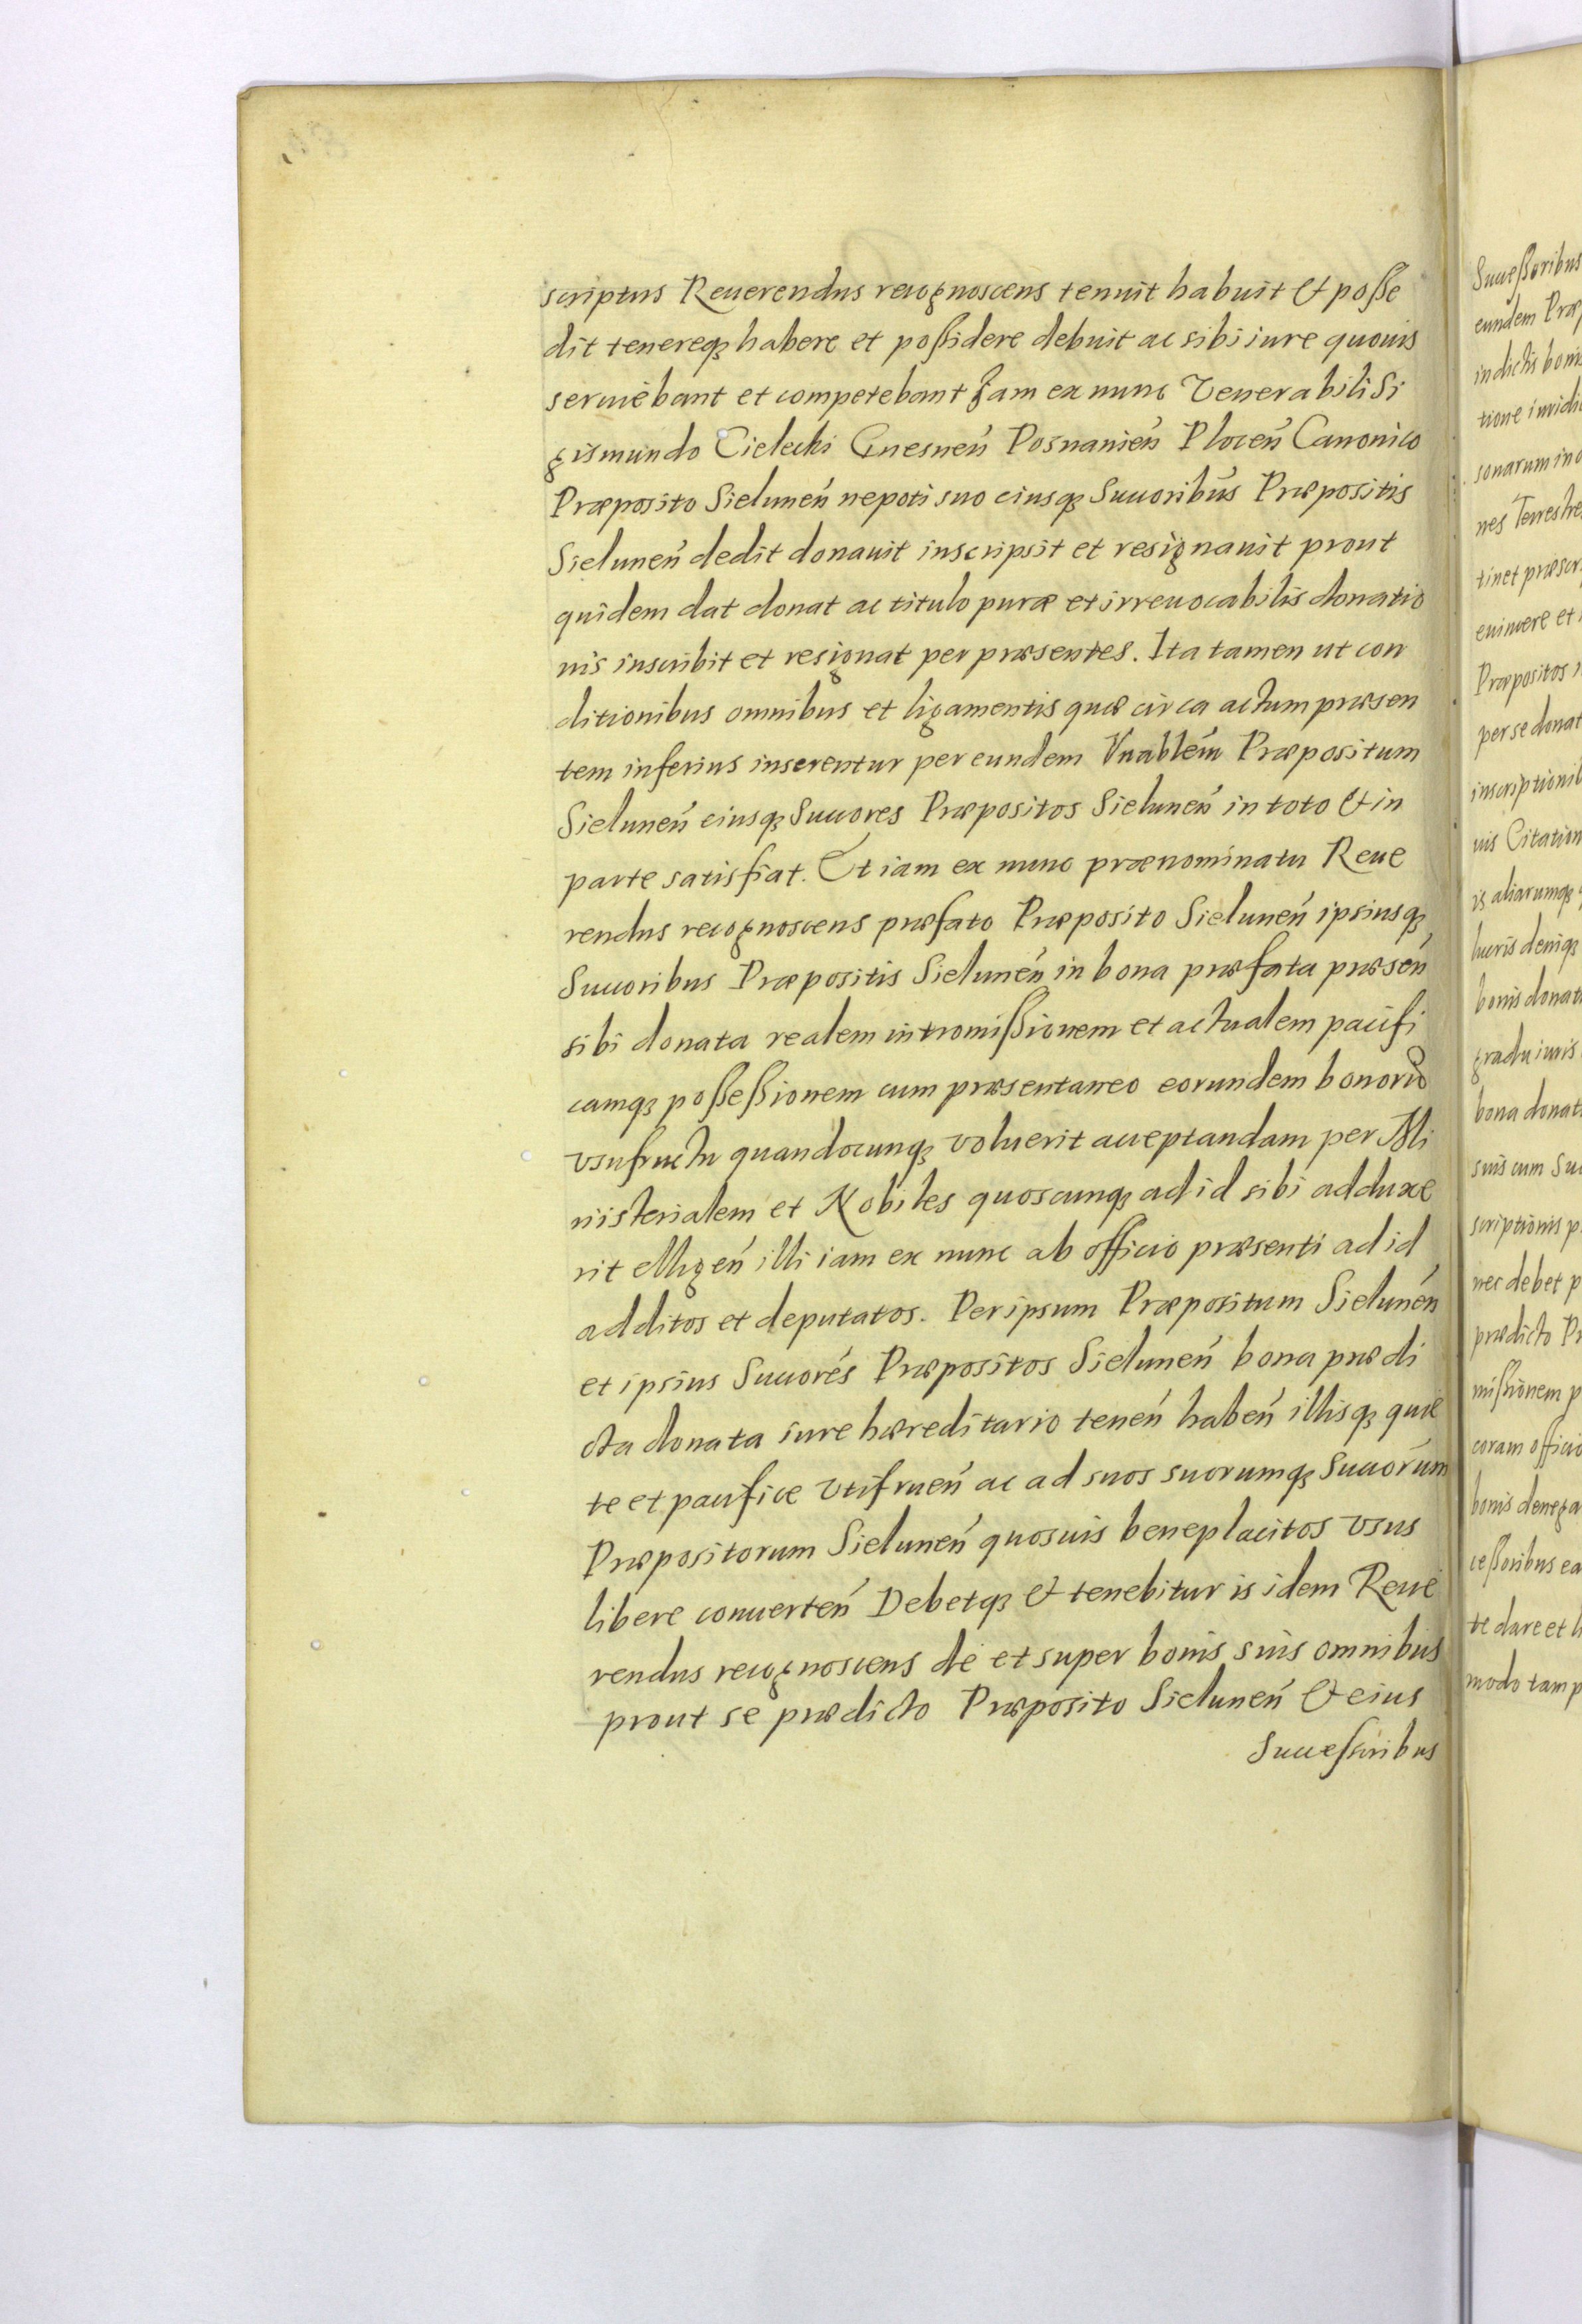 scriptus Reuerendus recognoscens tenuit habuit & posse
dit tenereqꝫ habere et possidere debuit ac sibi iure quouis
seruiebant et competebant Jam ex nunc Venerabili Si
gismundo Cielecki Gnesnen̄ Posnanien̄ Plocen̄ Canonico
Præposito Sielunen̄ nepoti suo eiusqꝫ Succoribus Præpositis
Sielunen̄ dedit donauit inscripsit et resignauit prout
quidem dat donat ac titulo puræ et irreuocabilis donatio
nis inscribit et resignat per præsentes. Ita tamen ut con
ditionibus omnibus et ligamentis quæ circa actum præsen
tem inferius inserentur per eundem Vnablem Præpositum
Sielunen̄ eiusqꝫ Succores Præpositos Sielunen̄ in toto & in
parte satisfiat. Et iam ex nunc prænominatu Reue
rendus recognoscens præfato Præposito Sielunen̄ ipsiusqꝫ
Succoribus Præpositis Sielunen̄ in bona præfata præsen̄
sibi donata realem intromissionem et actualem pacifi
camqꝫ possessionem cum præsentaneo eorundem bonorū
vsufructu quandocunqꝫ voluerit acceptandam per Mi
nisterialem et Nobiles quoscunqꝫ ad id sibi adduxe
rit elligen̄ illi iam ex nunc ab officio præsenti ad id
additos et deputatos. Per ipsum Præpositum Sielunen̄
et ipsius Succores Præpositos Sielunen̄ bona prædi
cta donata iure hæreditario tenen̄ haben̄ illisqꝫ quie
te et pacifice vtifruen̄ ac ad suos suorumqꝫ Succorum
Præpositorum Sielunen̄ quosuis beneplacitos vsus
libere conuerten̄ Debetqꝫ & tenebitur is idem Reue
rendus recognoscens de et super bonis suis omnibus
prout se prædicto Præposito Sielunen̄ & eius
Successoribus
Successoribus
eundem Præp
in dictis bonis
tione iuridi
sonarum in
nes Terrestre
tinet præscr
euincere et
Præpositos
per se donat
inscriptionib
uis Citation
is aliarumqꝫ
lucris deniqꝫ
bonis donat
gradu iuris
bona donat
suis cum Suc
scriptionis p
nec debet p
prædicto Pr
missionem p
coram officio
bonis denega
cessoribus ea
te dare et h
modo tam p